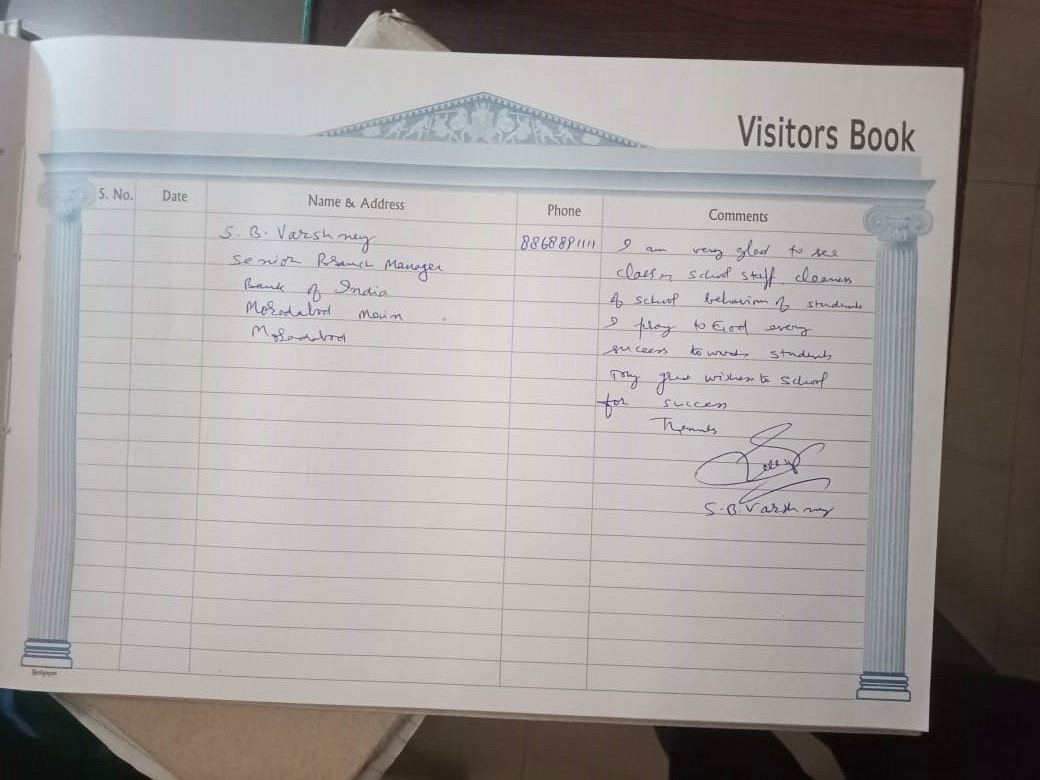 Visitors Book
S. No. Date Name & Address Phone Comments
S. B. Varshney 8868891111 I am very glad to see
Senior Branch Manager class, school staff, cleaness
Bank of India of school behaviour of students
Moradabad Main I pray to God every
Moradabad success towards students
My great wishes to school
for success
Thanks
S.B. Varshney